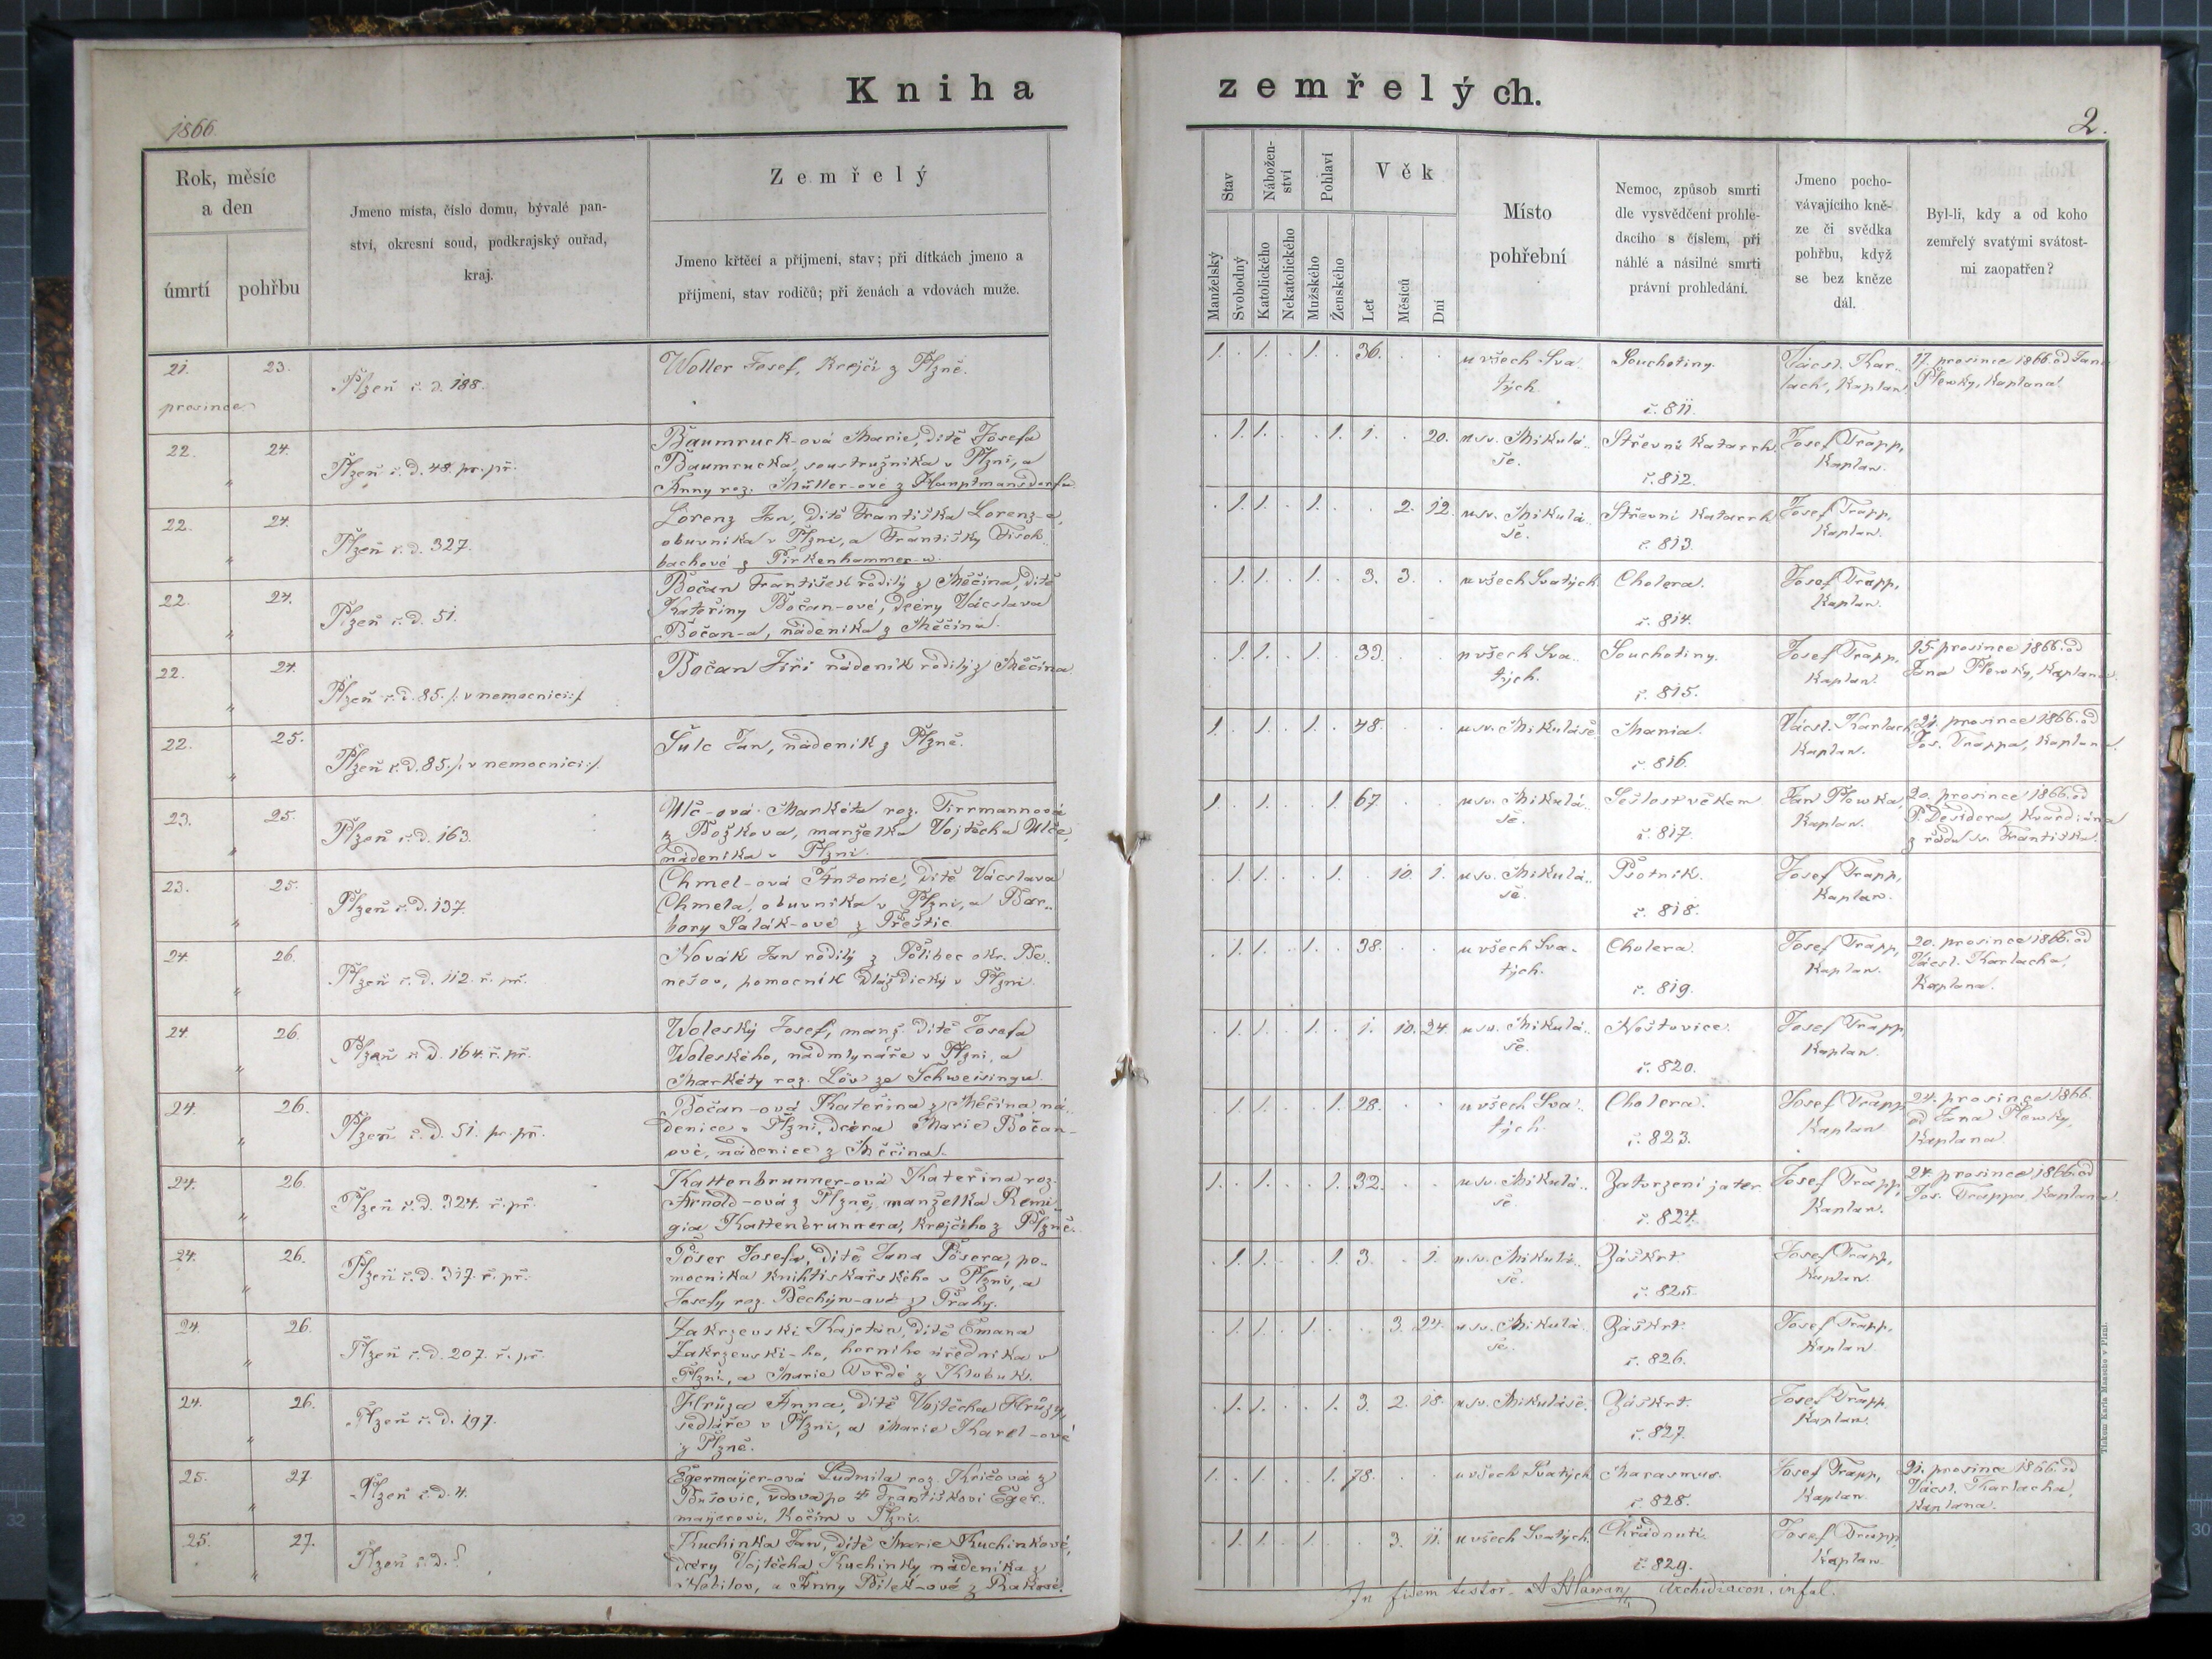 Kniha zemřelých.
1866.
2.
Rok, měsíc
a den
úmrtí
pohřbu
Jmeno místa, číslo domu, bývalé pan-
ství, okresní soud, podkrajský ouřad,
kraj.
Zemřelý
Jmeno křtěcí a přijmení, stav; při dítkách jmeno a
přijmení, stav rodičů; při ženách a vdovách muže.
Stav
Manželský
Svobodný
Nábožen-
ství
Katolického
Nekatolického
Pohlaví
Mužského
Ženského
Věk
Let
Měsíců
Dní
Místo
pohřební
Nemoc, způsob smrti
dle vysvědčení prohlé-
dacího s číslem, při
náhlé a násilné smrti
právní prohledání.
Jmeno pocho-
vávajícího kně-
ze či svědka
pohřbu, když
se bez kněze
dál.
Byl-li, kdy a od koho
zemřelý svatými svátost-
mi zaopatřen?
21. 23.
prosince
Plzeň č. d. 188.
Woller Josef, krejčí z Plzně.
1. . 1. . 1. . 36. . .
u všech Sva
tých
Souchotiny.
č. 811.
Václ. Kar..
lach, Kaplan
17. prosince 1866. od Jana
Plewky, Kaplana.
22. 24.
"
Plzeň č. d. 48. pr. př.
Baumruck-ová Marie, dítě Josefa
Baumrucka, soustružníka v Plzni, a
Anny roz. Müller-ové z Hauptmansdorfu
. 1. 1. . . 1. 1. . 20.
u sv. Mikulá..
še.
Střevní Katarrh.
č. 812.
Josef Trapp,
Kaplan.
22. 24.
"
Plzeň č. d. 327.
Lorenz Jan, dítě Františka Lorenz-a,
obuvníka v Plzni, a Františky Fisch..
bachové z Pirkenhammer-u.
. 1. 1. . 1. . . 2. 12.
u sv. Mikulá..
še.
Střevní Katarrh
č. 813.
Josef Trapp,
Kaplan.
22. 24.
"
Plzeň č. d. 51.
Bočan František rodilý z Měčína, dítě
Kateřiny Bočan-ové, dcéry Václava
Bočan-a, nádeníka z Měčína.
. 1. 1. . 1. . 3. 3. .
u všech Svatých.
Cholera.
č. 814.
Josef Trapp,
Kaplan.
22. 24.
"
Plzeň č. d. 85. /: v nemocnici :/
Bočan Jiří nádeník rodilý z Měčína
. 1. 1. . 1. . 33. . .
u všech Sva..
tých.
Souchotiny.
č. 815.
Josef Trapp,
Kaplan.
15. prosince 1866. od
Jana Plewky, Kaplana.
22. 25.
"
Plzeň č. d. 85. /: v nemocnici :/
Šulc Jan, nádeník z Plzně.
1. . 1. . 1. . 48. . .
u sv. Mikuláše
Mania.
č. 816.
Václ. Karlach,
Kaplan.
21. prosince 1866. od
Jos. Trappa, Kaplana.
23. 25.
"
Plzeň č. d. 163.
Ulč-ová Markéta roz. Tirrmannová
z Božkova, manželka Vojtěcha Ulče,
nádeníka v Plzni.
1. . 1. . . 1. 67. . .
u sv. Mikulá..
še.
Sešlost věkem
č. 817.
Jan Plewka,
Kaplan.
20. prosince 1866. od
P. Desidera, Kvardiána
z řádu sv. Františka.
23. 25.
"
Plzeň č. d. 137.
Chmel-ová Antonie, dítě Václava
Chmela, obuvníka v Plzni, a Bar..
bory Salák-ové z Přeštic
. 1. 1. . . 1. . 10. 1.
u sv. Mikulá..
še.
Psotník.
č. 818.
Josef Trapp,
Kaplan.
24. 26.
"
Plzeň č. d. 112. ř. př.
Novák Jan rodilý z Polibec okr. Be..
nešov, pomocník dlaždický v Plzni.
. 1. 1. . 1. . 38. . .
u všech Sva-
tých.
Cholera.
č. 819.
Josef Trapp,
Kaplan.
20. prosince 1866. od
Václ. Karlacha,
Kaplana.
24. 26.
"
Plzeň č. d. 164. ř. př.
Woleský Josef, manž. dítě Josefa
Woleského, nadmlynáře v Plzni, a
Markéty roz. Löw ze Schweisingu.
. 1. 1. . 1. . 1. 10. 24.
u sv. Mikulá..
še.
Neštovice.
č. 820.
Josef Trapp
Kaplan.
24. 26.
"
Plzeň č. d. 51. pr. př.
Bočan-ová Kateřina z Měčína ná..
denice v Plzni, dcéra Marie Bočan-
ové, nádenice z Měčína.
. 1. 1. . . 1. 28. . .
u všech Sva..
tých.
Cholera.
č. 823.
Josef Trapp
Kaplan
24. prosince 1866.
od Jana Plewky,
Kaplana.
24. 26.
"
Plzeň č. d. 324. ř. př.
Kattenbrunner-ová Kateřina roz.
Arnold-ová z Plzně, manželka Remi-
gia Kattenbrunnera, krejčího z Plzně.
1. . 1. . . 1. 32. . .
u sv. Mikulá..
še.
Zatvrzení jater
č. 824.
Josef Trapp,
Kaplan.
24. prosince 1866. od
Jos. Trappa, Kaplana.
24. 26.
"
Plzeň č. d. 317. ř. př.
Pöser Josefa, dítě Jana Pösera, po..
mocníka knihtiskařského v Plzni, a
Josefy roz. Bechyn-ové z Prahy.
. 1. 1. . . 1. 3. . 1.
u sv. Mikulá..
še.
Záškrt.
č. 825.
Josef Trapp,
Kaplan.
24. 26.
"
Plzeň č. d. 207. ř. př.
Zakrzeuski Kajetán, dítě Emana
Zakrzeuski-ho, horního úředníka v
Plzni, a Marie Tvrdé z Klobuk.
. 1. 1. . 1. . . 3. 24.
u sv. Mikulá
še.
Záškrt.
č. 826.
Josef Trapp,
Kaplan.
24. 26.
"
Plzeň č. d. 197.
Hrůza Anna, dítě Vojtěcha Hrůzy,
sedláře v Plzni, a Marie Karel-ové
z Plzně.
. 1. 1. . . 1. 3. 2. 18.
u sv. Mikuláše.
Záškrt.
č. 827.
Josef Trapp,
Kaplan.
25. 27.
"
Plzeň č. d. 4.
Egermayer-ová Ludmila roz. Kričová z
Bušovic, vdova po Františkovi Eger..
mayerovi, kočím v Plzni.
1. . 1. . . 1. 78. . .
u všech Svatých
Marasmus.
č. 828.
Josef Trapp,
Kaplan.
21. prosince 1866. od
Václ. Karlacha,
Kaplana.
25. 27.
"
Plzeň č. d. ?
Kuchinka Jan, dítě Marie Kuchinkové,
dcéry Vojtěcha Kuchinky, nádeníka z
Nebílov, a Anny Bílek-ové z Rakové.
. 1. 1. . 1. . . 3. 11.
u všech Svatých.
Chřadnutí.
č. 829.
Josef Trapp,
Kaplan.
In fidem testor Archidiacon. inful.
Tiskem Karla Maasche v Plzni.